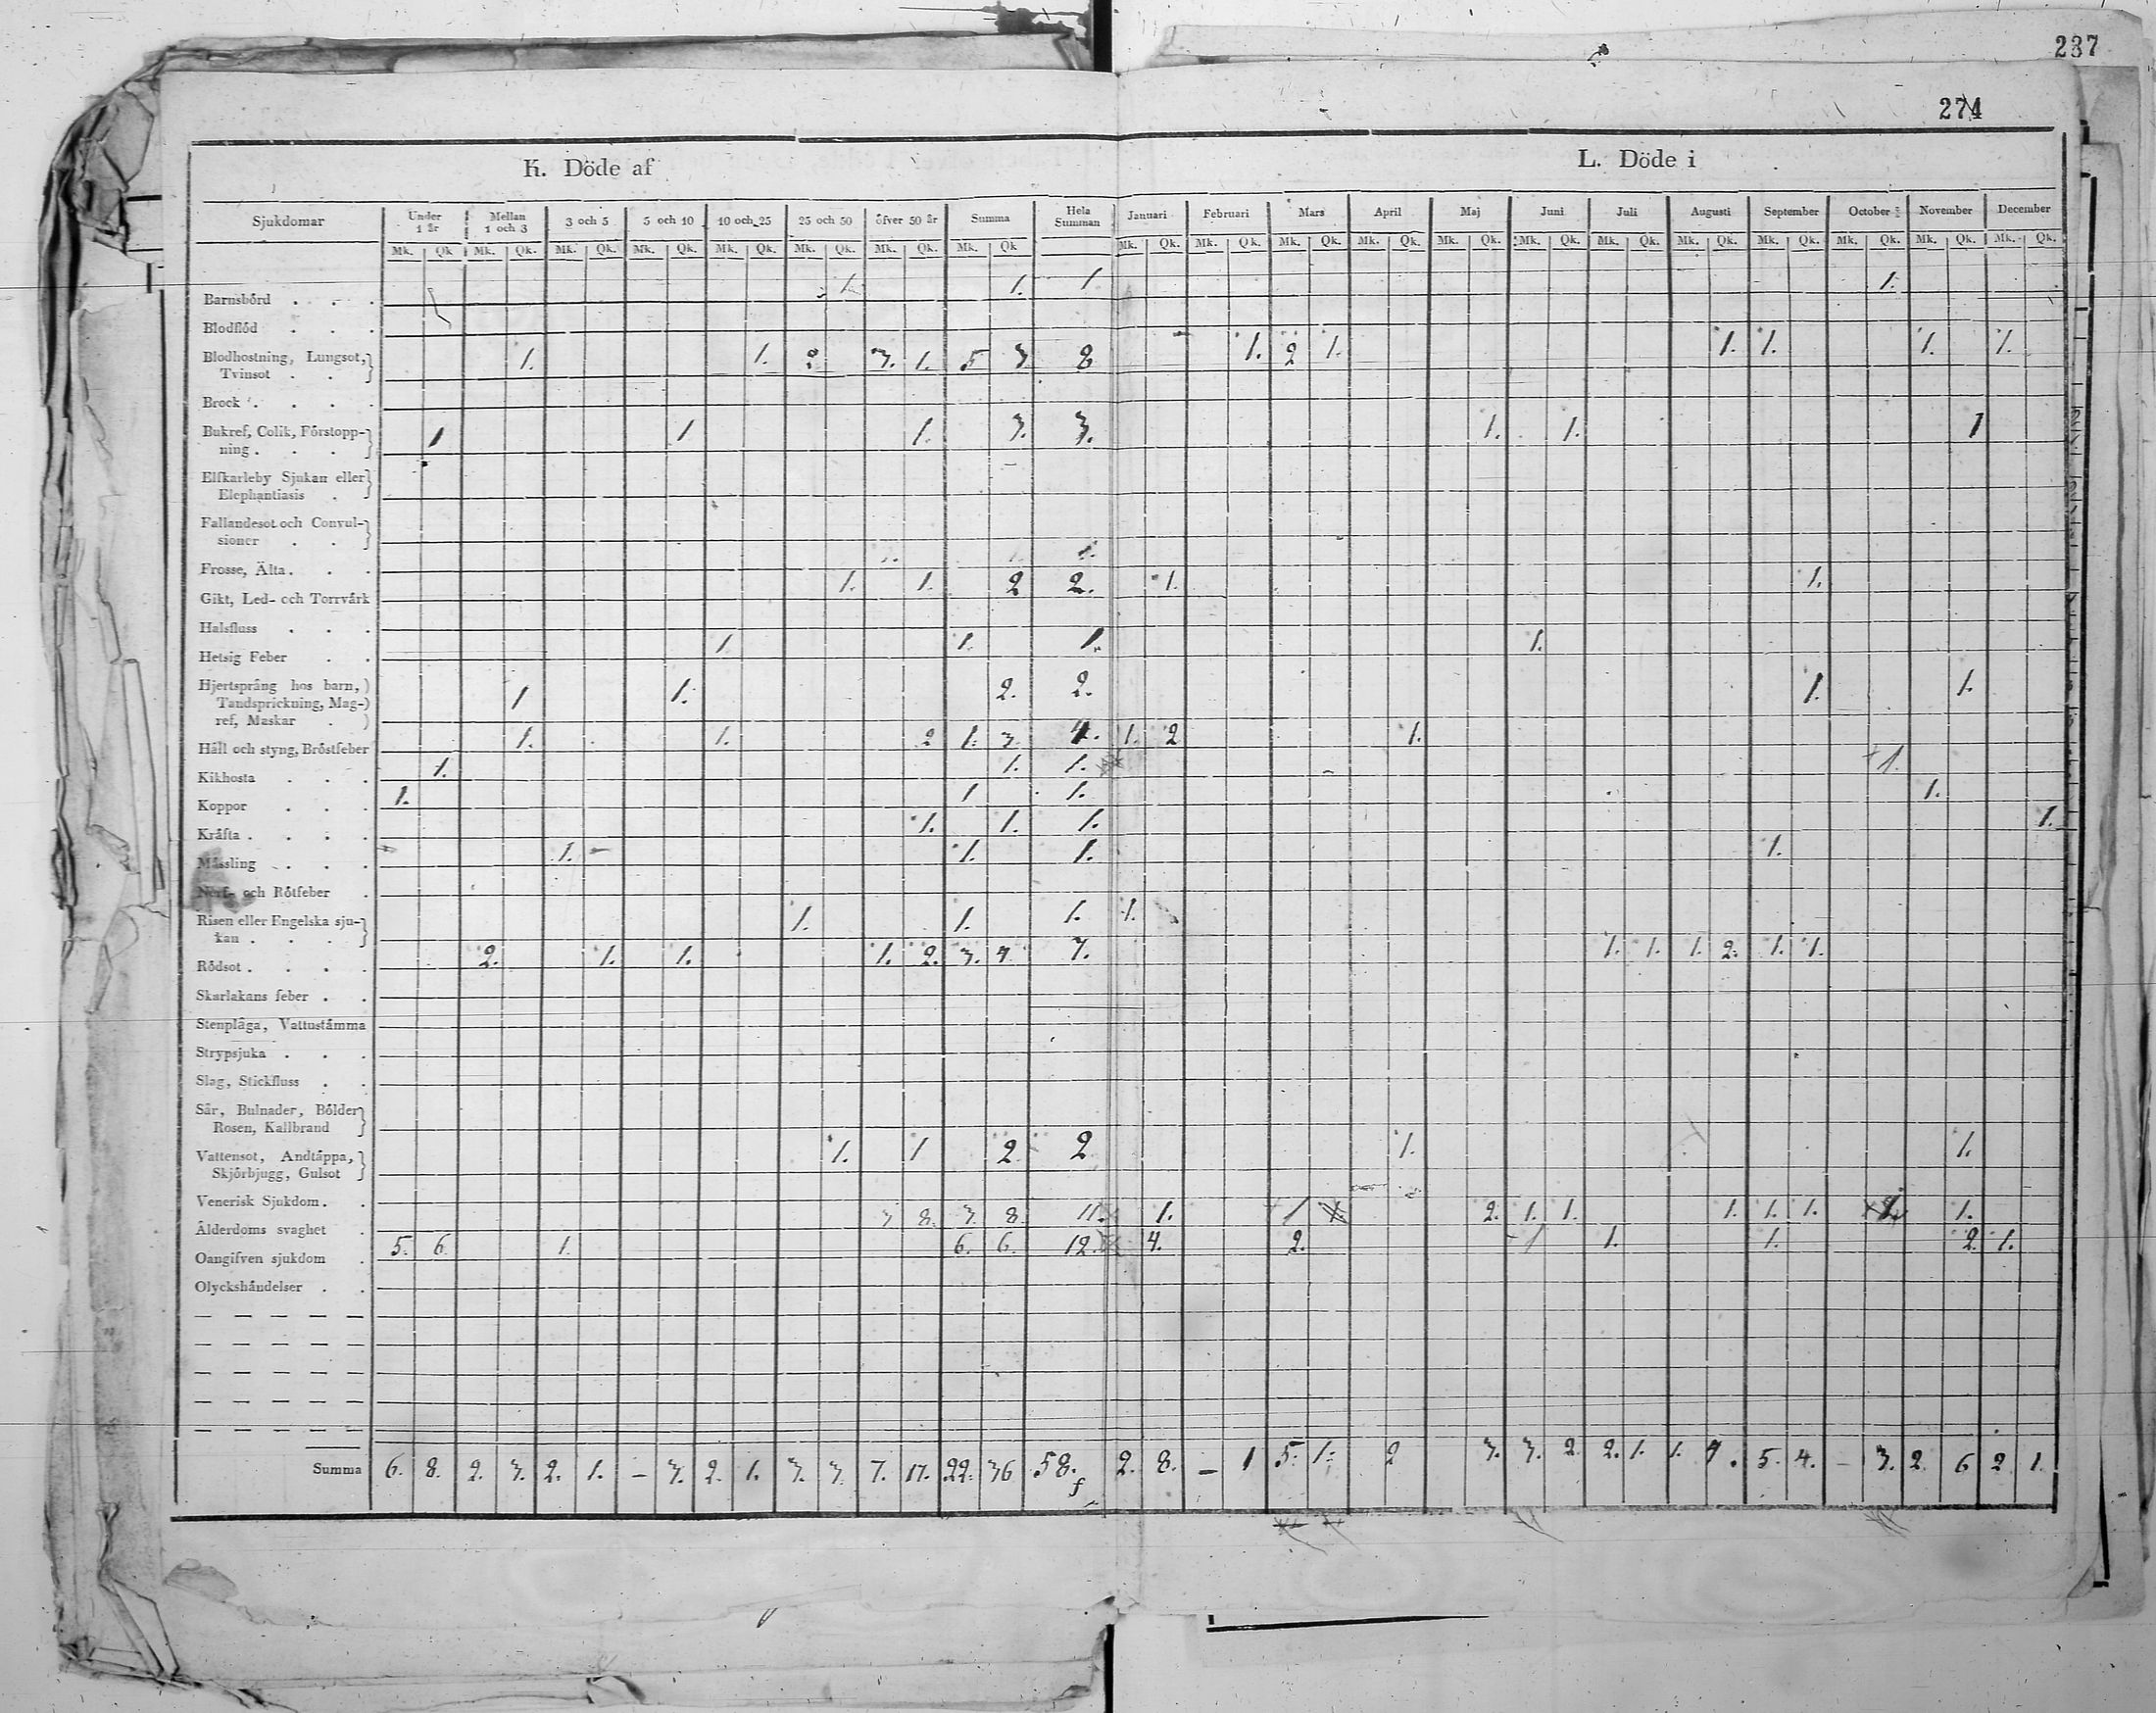 237
274
K. Döde af
L. Döde i
Sjukdomar | Under 1 år | Mellan 1 och 3 | 3 och 5 | 5 och 10 | 10 och 25 | 25 och 50 | öfver 50 år | Summa | Hela Summan | Januari | Februari | Mars | April | Maj | Juni | Juli | Augusti | September | October | November | December
Mk. Qk Mk. Qk. Mk. Qk. Mk. Qk. Mk. Qk. Mk. Qk. Mk. Qk. Mk. Qk Mk. Qk. Mk. Qk. Mk. Qk. Mk. Qk. Mk. Qk. Mk. Qk. Mk. Qk. Mk. Qk. Mk. Qk. Mk. Qk. Mk. Qk. Mk. Qk.
Barnsbörd . . . 1. 1. 1 1.
Blodflöd . . .
Blodhostning, Lungsot, Tvinsot . . 1. 1. 2 3. 1. 5 3 8 1. 2 1. 1. 1. 1. 1.
Brock . . . .
Bukref, Colik, Förstoppning . . . 1 1 1. 3. 3. 1. 1. 1
Elfkarleby Sjukan eller Elephantiasis .
Fallandesot och Convulsioner . .
Frosse, Älta . . .
Gikt, Led- och Torrvärk 1. 1. 2 2. 1. 1.
Halsfluss . . .
Hetsig Feber . . 1. 1. 1. 1.
Hjertsprång hos barn, Tandsprickning, Magref, Maskar . 1 1. 2. 2. 1. 1.
Håll och styng, Bröstfeber 1. 1. 2 1. 3. 4. 1. 2 1.
Kikhosta . . . 1. 1. 1. 1.
Koppor . . . 1. 1 1. 1.
Kräfta . . . . 1. 1. 1. 1.
Mässling . . . 1. 1. 1. 1.
Nerf- och Rötfeber .
Risen eller Engelska sjukan . . . 1. 1. 1. 1.
Rödsot . . . . 2. 1. 1. 1. 2. 3. 4 7. 1. 1. 1. 2. 1. 1.
Skarlakans feber . .
Stenplåga, Vattustämma
Strypsjuka . . .
Slag, Stickfluss . .
Sår, Bulnader, Bölder Rosen, Kallbrand
Vattensot, Andtäppa, Skjörbjugg, Gulsot 1. 1 2 2 1. 1.
Venerisk Sjukdom . .
Ålderdoms svaghet . 3 8. 3. 8. 11. 1. 1 2. 1. 1. 1. 1. 1. 1.
Oangifven sjukdom . 5. 6. 1. 6. 6. 12. 4. 2. 1 1. 1. 2. 1.
Olyckshändelser . .
Summa 6. 8. 2. 3. 2. 1. – 3. 2. 1. 3. 3. 7. 17. 22. 36 58. 2. 8. – 1 5. 1. 2 3. 3. 2 2. 1. 1. 4. 5. 4. – 3. 2. 6 2 1.